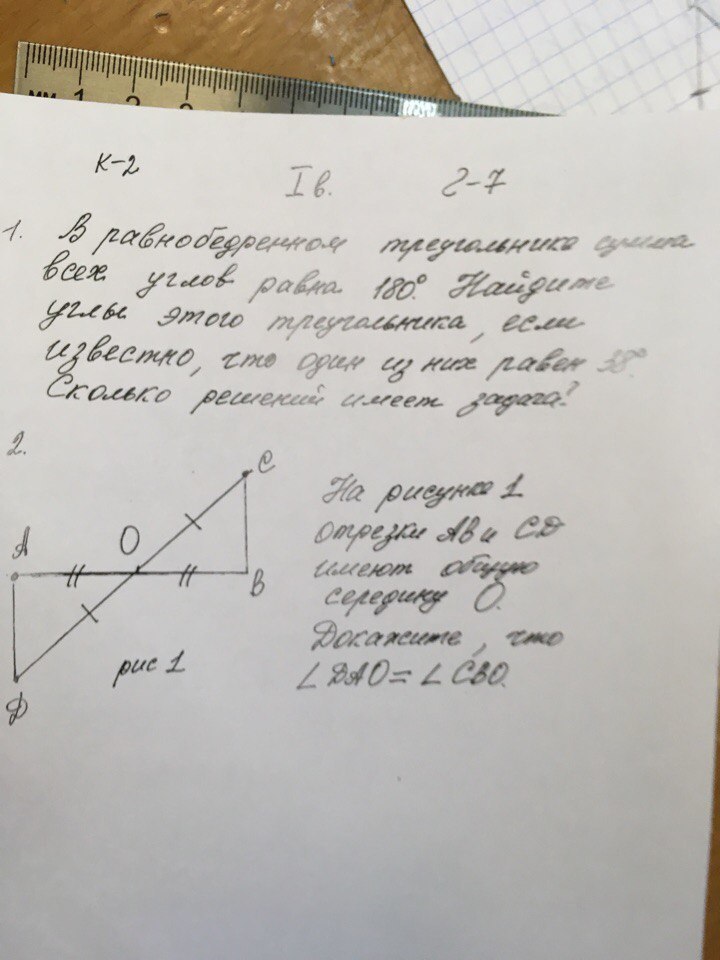 мм 1 2 3
К-2
I в. Г-7
1. В равнобедренном треугольнике сумма
всех углов равна 180°. Найдите
углы этого треугольника, если
известно, что один из них равен 38°.
Сколько решений имеет задача?
2.
С
А
О
В
D
рис 1
На рисунке 1
отрезки AB и CD
имеют общую
середину О.
Докажите, что
∠DAO = ∠CBO.